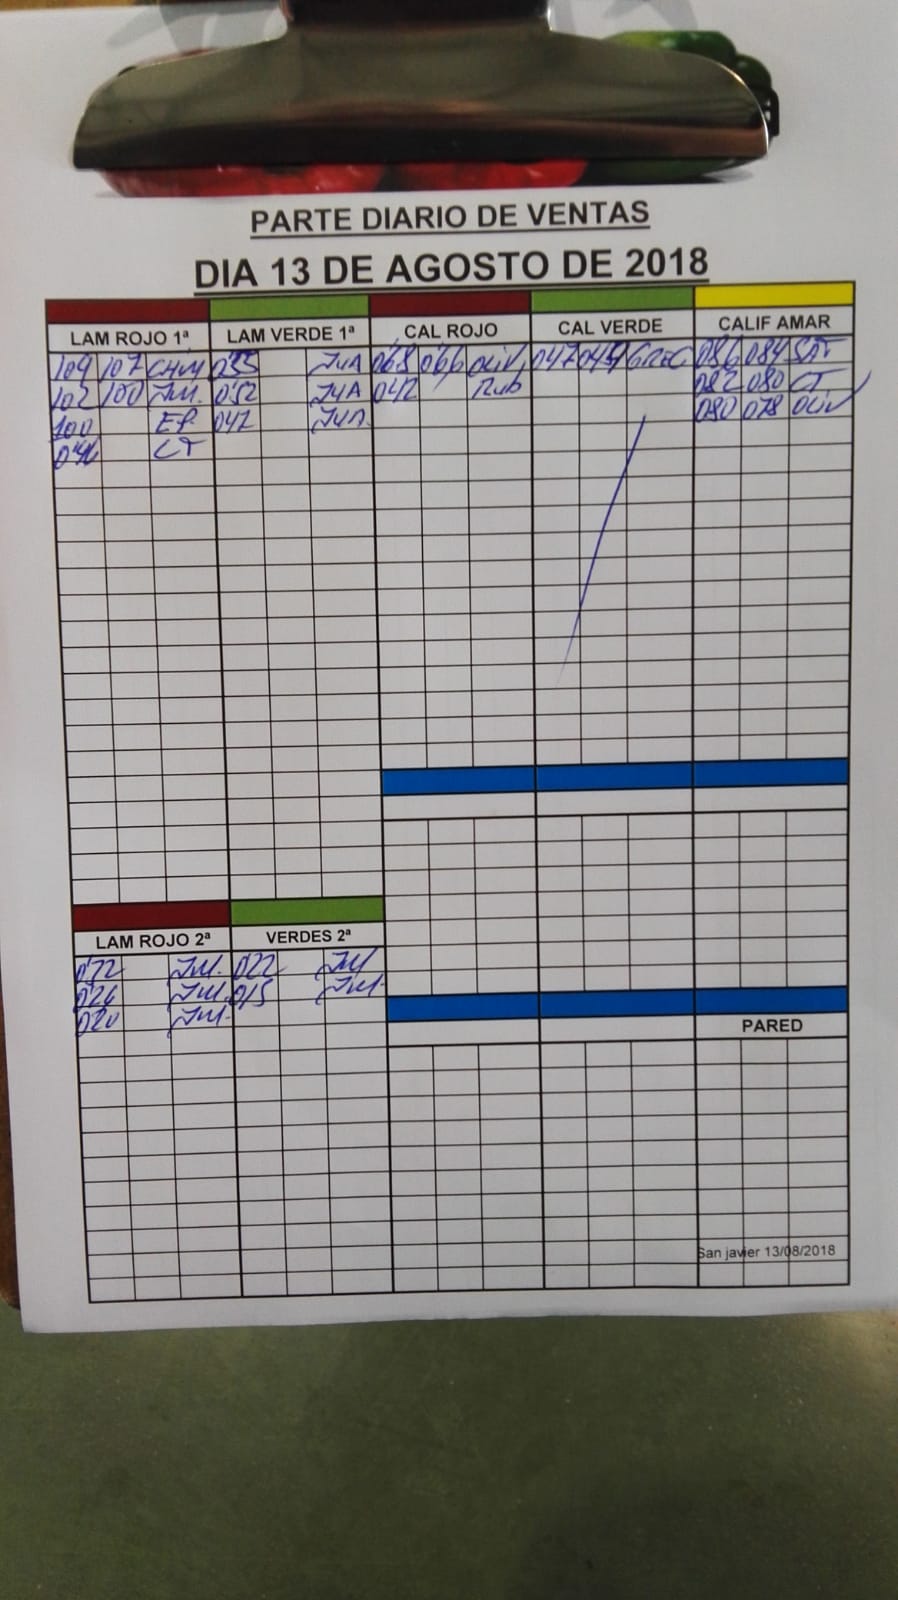 PARTE DIARIO DE VENTAS
DIA 13 DE AGOSTO DE 2018
LAM ROJO 1ª LAM VERDE 1ª CAL ROJO CAL VERDE CALIF AMAR
109 107 CHM 055 JUA 068 066 OLIV 047 045 GREG 086 084 SAT
102 100 JM. 052 JUA 042 Rub 082 080 CT
100 EP. 047 JUA 080 078 OLIV
CT
LAM ROJO 2ª VERDES 2ª
022 JM 022 JM
026 JM. 015 JM.
020 JM.
PARED
San javier 13/08/2018